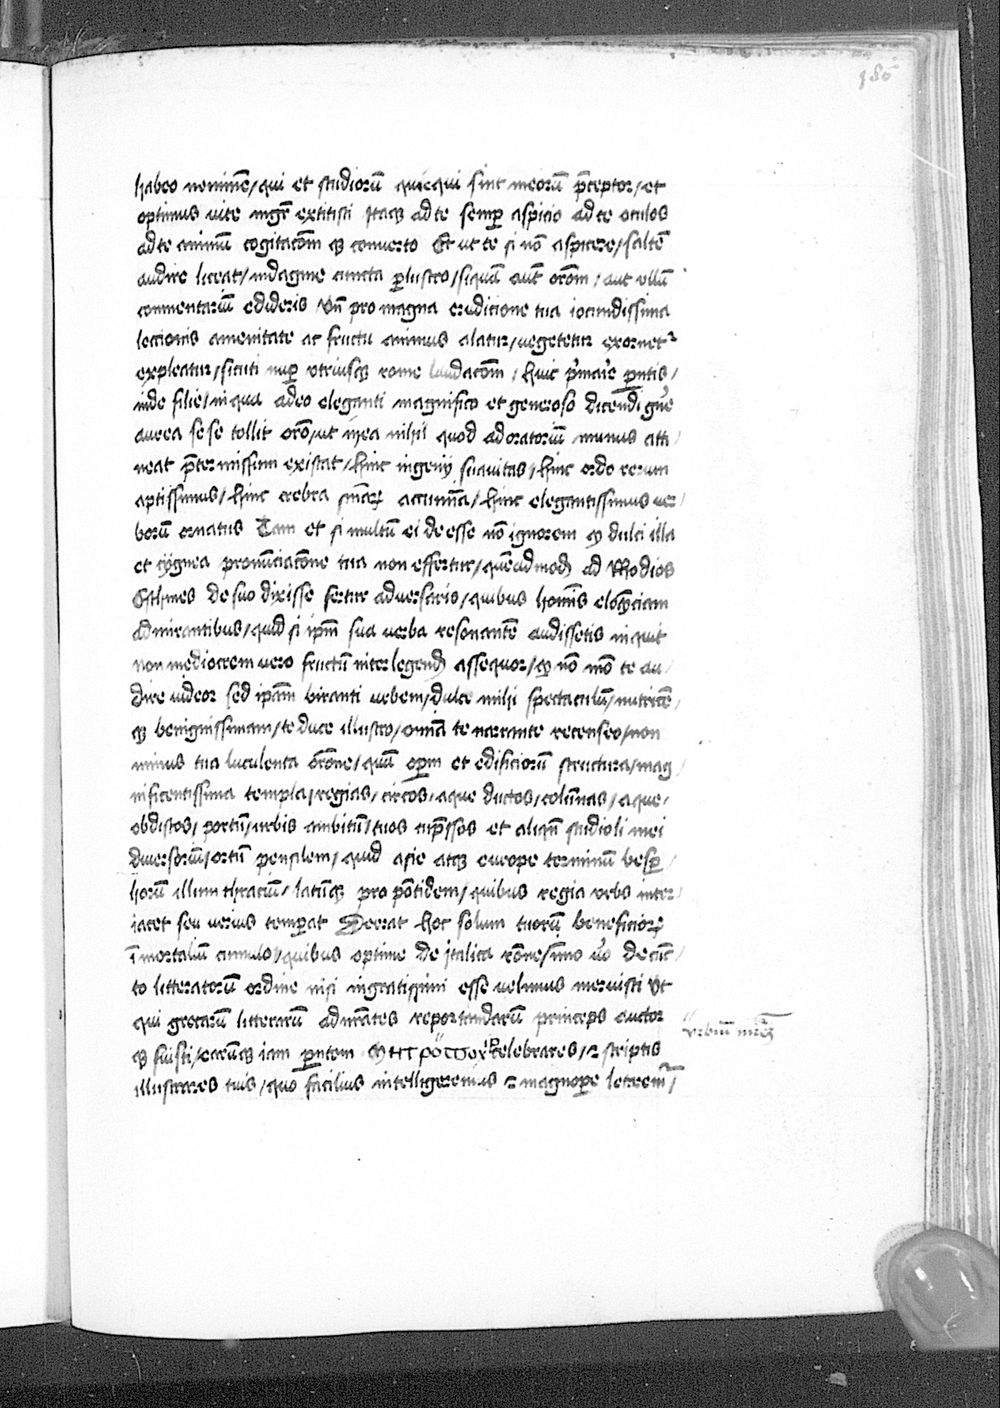 186
habeo neminē/qui et studiorū quicqui sint meorū p̄ceptor/et
optimus vite mgr̄ extitisti Itaqꝫ ad te semꝑ aspicio ad te oculos
ad te animū cogitacōm qꝫ conuerto Et ut te si nō aspicere/saltē
audire liceat/indagine cuncta ꝑlustro/siquā aut̄ orōm/aut ullū
commentariū edideris Vn̄ pro magna eruditione tua iocundissima
lectionis amenitate ac fructu animus alatur/vegetetur exornetᷣ
expleatur/sicuti nuꝑ utriusqꝫ rome laudacōm/huic ꝑntis/
inde filie/in qua adeo eleganti magnifico et generoso dicendi gn̄e
aurea sese tollit orō/ut in ea nihil quod ad oratoriū munus atti/
neat p̄termissum existat/hinc ingenij suauitas/hinc ordo rerum
aptissimus/hinc crebra sn̄iaꝝ acumina/hinc elegantissimus ver/
borū ornatus Tam et si multū ei deesse nō ignorem qꝫ dulci illa
et cygnea pronūciacōne tua non effertur/quēadmodꝫ ad Rhodios
Eschines de suo dixisse fertur aduersario/quibus hoīnis eloqꝫciam
admirantibus/quid si ipm̄ sua verba resonantē audissetis inquit
non mediocrem vero fructū inter legendꝫ assequor/qꝫ nō mō te au/
dire videor sed ipām biranti urbem/dulce mihi spectaculū/nutricē/
qꝫ benignissimam/te duce illustro/omīa te narrante recenseo/non
minus tua luculenta orōne/quā oꝑm et edificiorū structura/mag/
nificentissima templa/regias/circos/aque ductos/colūnas/aque/
obdistos/portū/urbis ambitū/tuos cup̄ssos et aliqn̄ studioli mei
diuersoriū/ortū pensilem/quid asie atqꝫ europe terminū besꝑ/
liorū illum thraciū/latūqꝫ pro pōtidem/quibus regia urbs inter/
iacet seu verius temꝑat Deerat hoc solum tuorū beneficioꝝ
īmortaliū cumulo/quibus optime de italica rōne/īmo v̄o de cūc/
to litteratorū ordine nisi ingratissimi esse velimus meruisti Vt
qui grecarū litterarū admīrātes reportandarū princeps auctor
qꝫ fuisti/earūqꝫ iam ꝑntem celebrares/⁊ scriptis
illustrares tuis/quo facilius intelligeremus ⁊ magnoꝑe letarem̄/
urbium mr̄ē